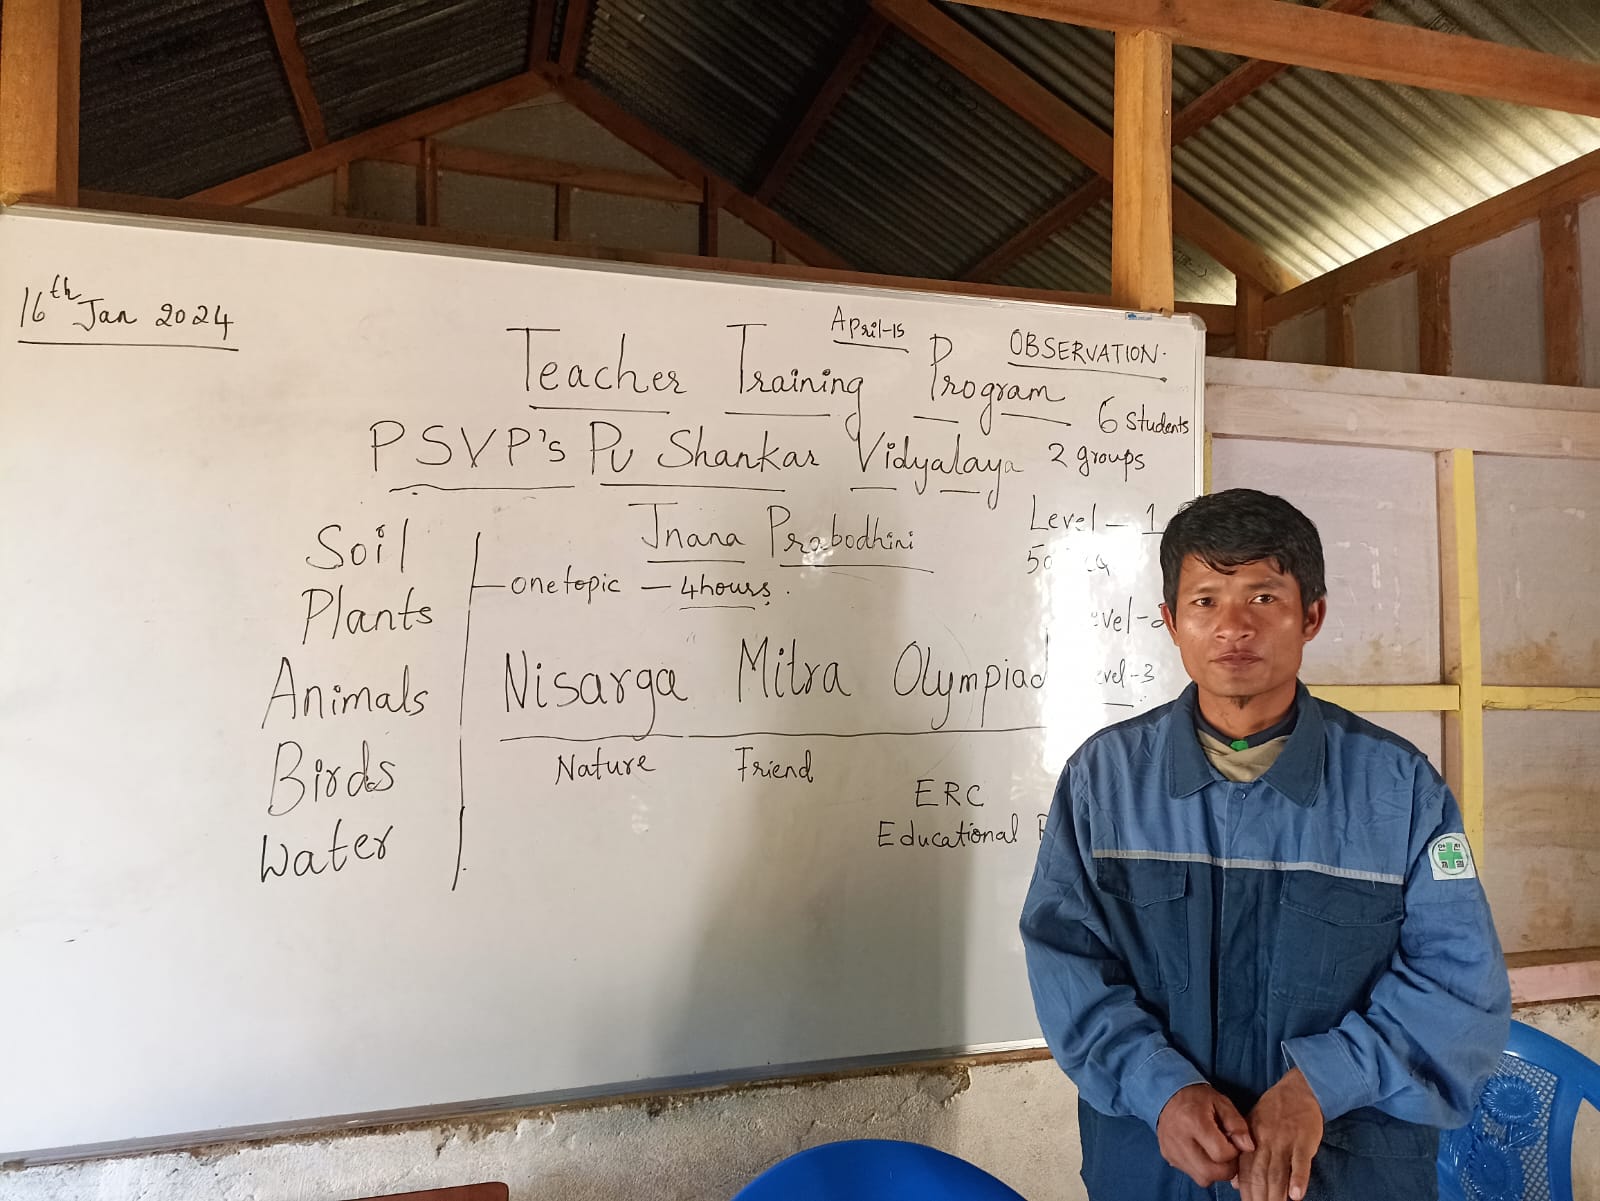 16th Jan 2024
April-15
OBSERVATION.
Teacher Training Program
6 Students
PSVP's Pu Shankar Vidyalaya
2 groups
Jnana Prabodhini
Level - 1
Soil
Plants
Animals
Birds
Water
one topic - 4 hours.
Level-3
Nisarga Mitra Olympiad
Nature Friend
ERC
Educational
안전
제일